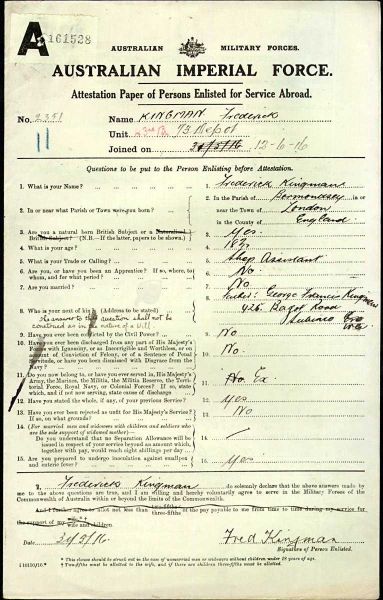 A
161528
AUSTRALIAN MILITARY FORCES.
AUSTRALIAN IMPERIAL FORCE.
Attestation Paper of Persons Enlisted for Service Abroad.
No. 2351 Name KINGMAN Frederick
11 Unit 73 Depot
Joined on 31/5/16 12-6-16
Questions to be put to the Person Enlisting before Attestation.
1. What is your Name? 1. Frederick Kingman
2. In or near what Parish or Town were you born? 2. In the Parish of Bermondsey in or
near the Town of London
in the County of England
3. Are you a natural born British Subject or a Naturalized 3. Yes
British Subject? (N.B.—If the latter, papers to be shown)
4. What is your age? 4.
5. What is your Trade or Calling? 5. Shop Assistant
6. Are you, or have you been an Apprentice? If so, where, to 6. No
whom, and for what period?
7. Are you married? 7. No
8. Who is your next of kin? (Address to be stated) 8. Father: George Francis Kingman
An answer to this question shall not be 426 Bagot Road
construed as in the nature of a will. Subiaco
9. Have you ever been convicted by the Civil Power? 9. No
10. Have you ever been discharged from any part of His Majesty's 10. No.
Forces with Ignominy, or as Incorrigible and Worthless, or on
account of Conviction of Felony, or of a Sentence of Penal
Servitude, or have you been dismissed with Disgrace from the
Navy?
11. Do you now belong to, or have you ever served in, His Majesty's 11. No.
Army, the Marines, the Militia, the Militia Reserve, the Terri-
torial Force, Royal Navy, or Colonial Forces? If so, state
which, and if not now serving, state cause of discharge
12. Have you stated the whole, if any, of your previous Service? 12. Yes
13. Have you ever been rejected as unfit for His Majesty's Service? 13. No
If so, on what grounds?
14. (For married men and widowers with children and soldiers who 14. —
are the sole support of widowed mother)—
Do you understand that no Separation Allowance will be
issued in respect of your service beyond an amount which,
together with pay, would reach eight shillings per day
15. Are you prepared to undergo inoculation against smallpox 15. Yes
and enteric fever?
I, Frederick Kingman do solemnly declare that the above answers made
by me to the above questions are true, and I am willing and hereby voluntarily agree to serve in the Military Forces of the
Commonwealth of Australia within or beyond the limits of the Commonwealth.
And I further agree to allot not less than two-fifths of the pay payable to me from time to time during my service for
three-fifths
the support of my wife
wife and children.
Date 31/5/16. Fred Kingman
Signature of Person Enlisted.
* This clause should be struck out in the case of unmarried men or widowers without children under 18 years of age.
† Two-fifths must be allotted to the wife, and if there are children three-fifths must be allotted.